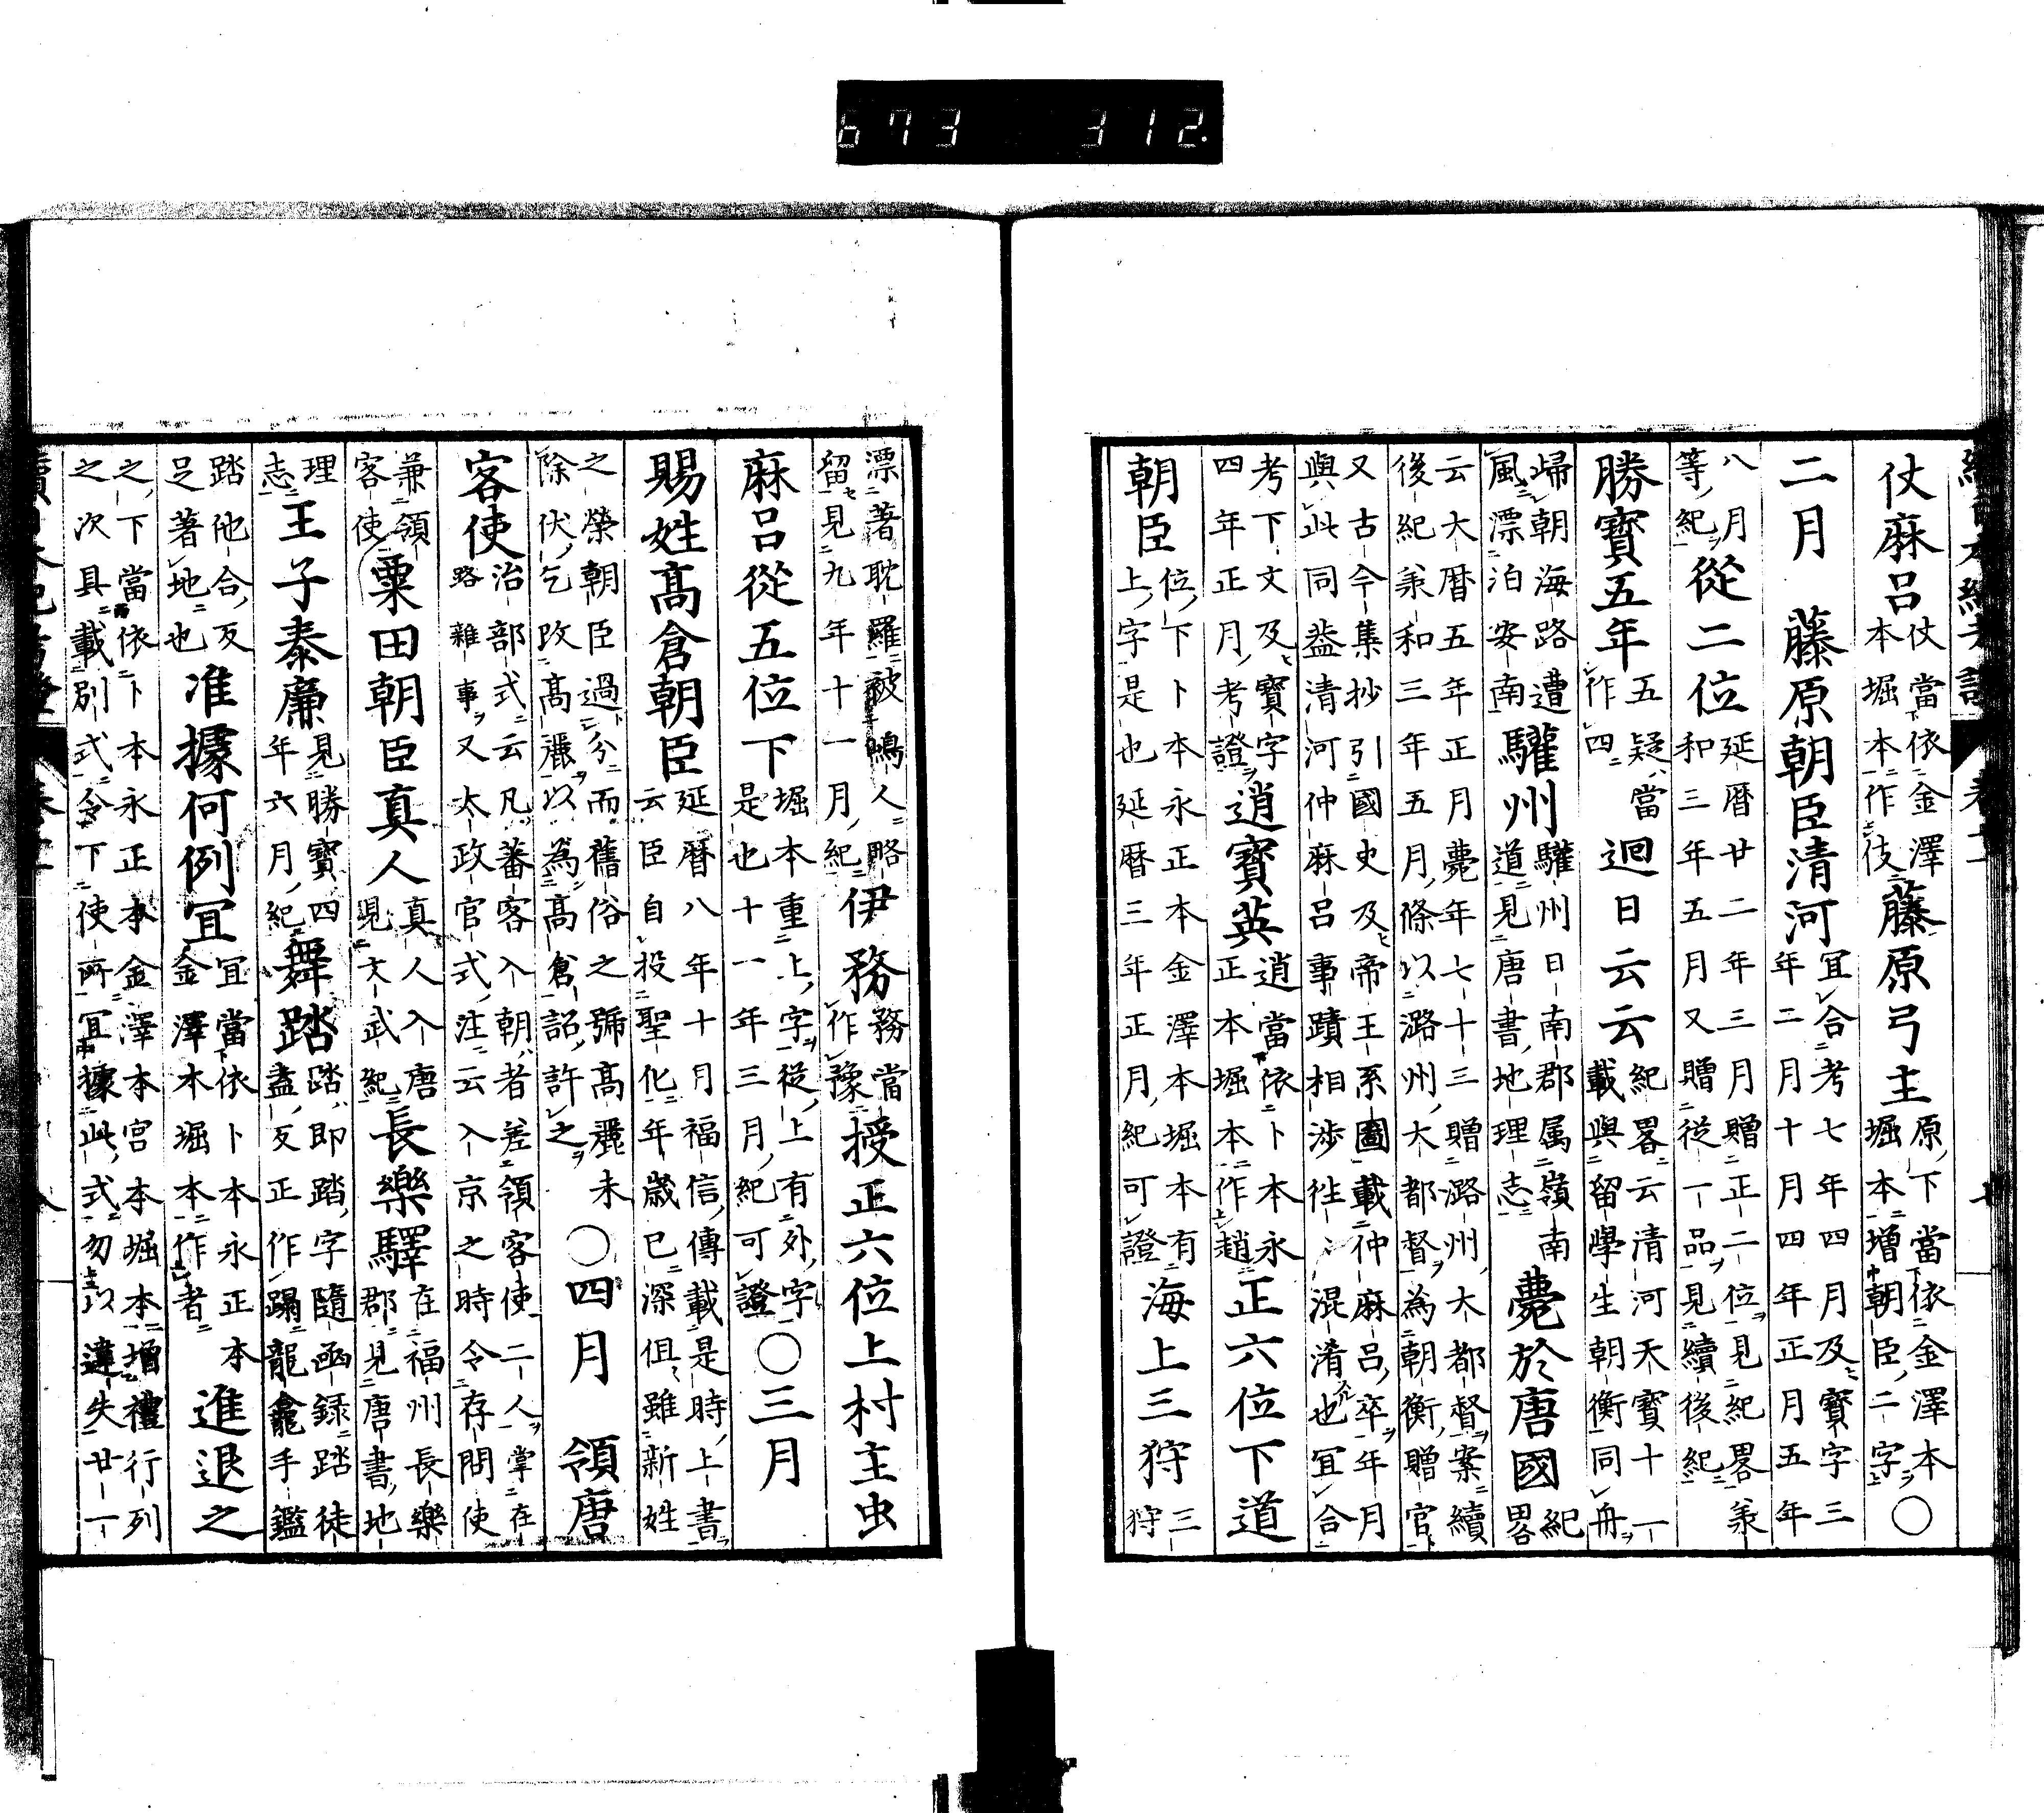 673 312.
仗麻呂仗當依金澤本堀本作伎藤原弓主原下當依金澤本堀本增朝臣二字〇
二月 藤原朝臣清河宜合考七年四月及寶字三年二月十月四年正月五年
八月等紀從二位延曆廿二年三月贈正二位見紀畧承和三年五月又贈從一品見續後紀
勝寶五年五疑當作四迴日云云紀畧云清河天寶十一載與留學生朝衡同舟
歸朝海路遭風漂泊安南驩州驩州日南郡属嶺南道見唐書地理志薨於唐國紀畧
云大曆五年正月薨年七十三贈潞州大都督案續後紀承和三年五月條以潞州大都督為朝衡贈官
又古今集抄引國史及帝王系圖載仲麻呂卒年月與此同葢清河仲麻呂事蹟相渉徃々混淆也宜合
考下文及寶字四年正月考證逍寶英逍當依卜本永正本堀本作趙正六位下道
朝臣位下卜本永正本金澤本堀本有上字是也延曆三年正月紀可證海上三狩三狩
漂著耽羅被嶋人略留見九年十一月紀伊務務當作豫授正六位上村主虫
麻呂從五位下堀本重上字從上有外字是也十一年三月紀可證〇三月
賜姓髙倉朝臣延曆八年十月福信傳載是時上書云臣自投聖化年歲已深但雖新姓
之榮朝臣過分而舊俗之號髙麗未除伏乞改髙麗以為髙倉詔許之〇四月 領唐
客使治部式云凡蕃客入朝者差領客使二人掌在路雜事又太政官式注云入京之時令存問使
兼領客使粟田朝臣真人真人入唐見文武紀長樂驛在福州長樂郡見唐書地
理志王子泰廉見勝寶四年六月紀舞踏踏即踏字隨函録踏徒盍反正作蹋龍龕手鑑
踏他合反足著地也准據何例宜宜當依卜本永正本金澤木堀本作者進退之
之下當依卜本永正本金澤本宮本堀本增禮行列之次具載別式令下使所宜據此式勿以違失廿一